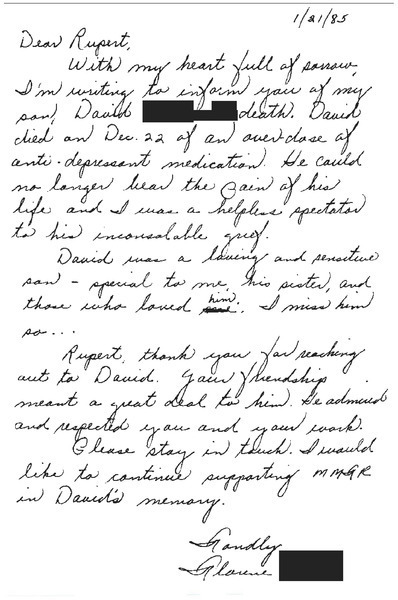 1/21/85
Dear Rupert,
With my heart full of sorrow,
I'm writing to inform you of my
son, David death. David
died on Dec. 22 of an over-dose of
anti-depressant medication. He could
no longer bear the pain of his
life and I was a helpless spectator
to his inconsolable grief.
David was a loving and sensitive
son - special to me, his sister, and
those who loved him. I miss him
so...
Rupert, thank you for reaching
out to David. Your friendship
meant a great deal to him. He admired
and respected you and your work.
Please stay in touch. I would
like to continue supporting MMGR
in David's memory.
Fondly
Florene